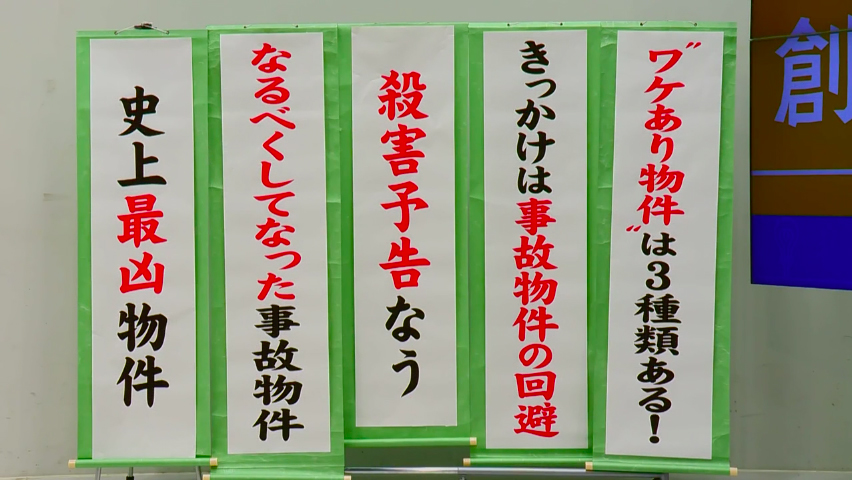 創
"ワケあり物件"は3種類ある!
きっかけは事故物件の回避
殺害予告なう
なるべくしてなった事故物件
史上最凶物件